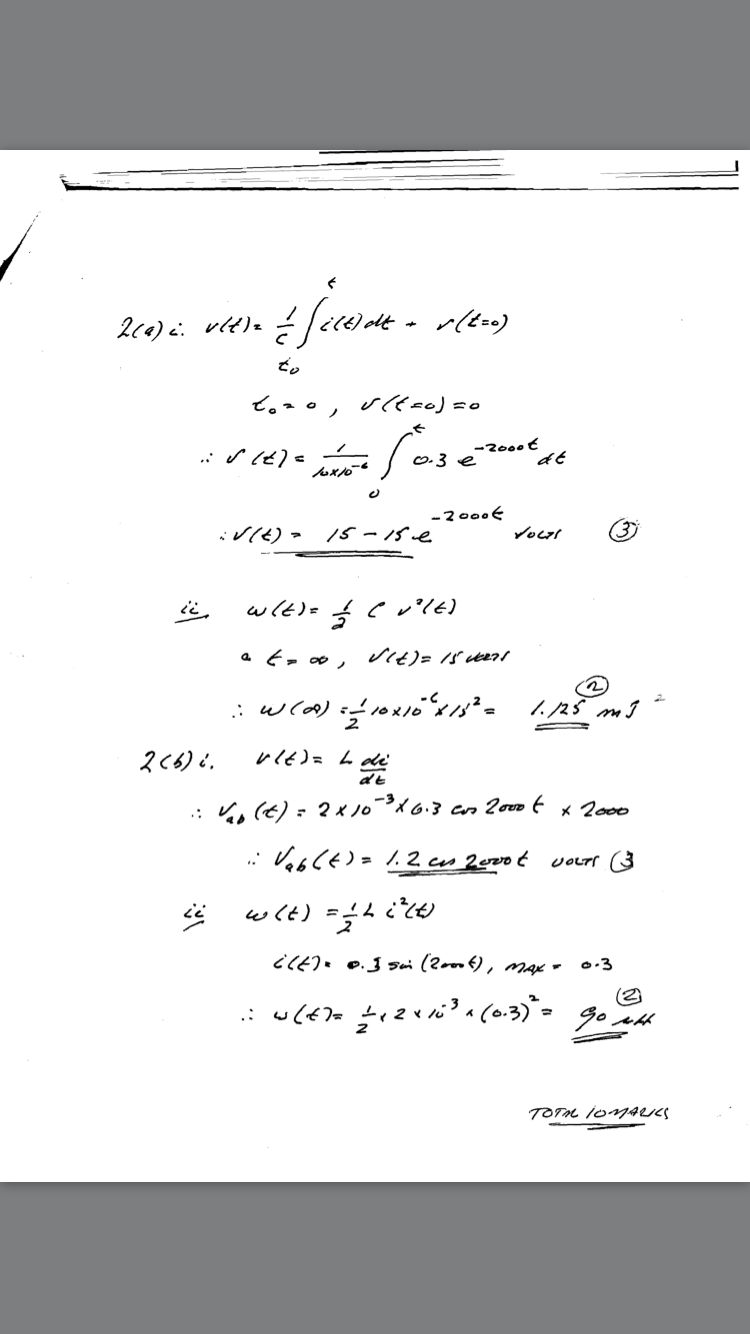 2(a) i. v(t) = 1/C ∫ i(t) dt + v(t=0)
t
t₀
t₀ = 0, v(t=0) = 0
∴ v(t) = 1/10x10⁻⁶ ∫₀ᵗ 0.3 e⁻²⁰⁰⁰ᵗ dt
∴ v(t) = 15 - 15 e⁻²⁰⁰⁰ᵗ volts (3)
ii w(t) = 1/2 C v²(t)
a t = ∞, v(t) = 15 volts
∴ w(∞) = 1/2 10x10⁻⁶ x 15² = 1.125 mJ (2)
2(b) i. v(t) = L di/dt
∴ Vab(t) = 2 x 10⁻³ x 0.3 cos 2000t x 2000
∴ Vab(t) = 1.2 cos 2000t VOLTS (3
ii w(t) = 1/2 L i²(t)
i(t) = 0.3 sin (2000t), MAX = 0.3
∴ w(t) = 1/2 x 2 x 10⁻³ x (0.3)² = 90 (2)
TOTAL 10 MARKS